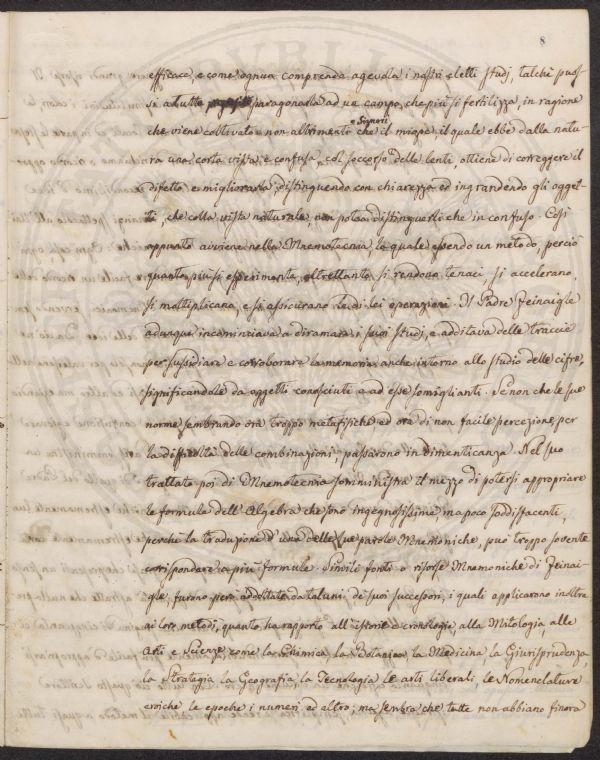 8
efficace, e come ognun comprenda agevola i nostri eletti studj, talchè puos-
si a tutta paragonarla ad un campo, che più si fertilizza, in ragione
che viene coltivato e non altrimenti che il miope, il quale ebbe dalla natu-
e Signori
ra una corta vista, e confusa, col soccorso delle lenti, ottiene di correggere il
difetto, e migliorarla, distinguendo con chiarezza ed ingrandendo gli ogget-
ti, che colla vista naturale, non potea distinguerli che in confuso. Così
appunto avviene nella Mnemotecnia, la quale essendo un metodo, perciò
quanto più si esperimenta, altrettanto si rendono tenaci, si accelerano,
si moltiplicano, e si assicurano le di lei operazioni. Il Padre Feinaigle
adunque incominciava a diramare i suoi studj, e additava delle traccie
per sussidiare e corroborare la memoria anche intorno allo studio delle cifre,
significandole da oggetti conosciuti e ad esse somiglianti. Se non che le sue
norme sembrando ora troppo metafisiche ed ora di non facile percezione, per
la difficoltà delle combinazioni, passarono in dimenticanza. Nel suo
trattato poi di Mnemotecnia somministra il mezzo di potersi appropriare
le formule dell'Algebra che sono ingegnosissime ma poco soddisfacenti,
perchè la traduzione d'una delle sue parole Mnemoniche, può troppo sovente
corrispondere a più formule. Simili fonti o risorse Mnemoniche di Feinai-
gle, furono però adottate da taluni de' suoi successori, i quali applicarono inoltre
ai loro metodi, quanto ha rapporto all'istorie e cronologie, alla Mitologia, alle
Arti e Scienze, come la Chimica, la Botanica, la Medicina, la Giurisprudenza,
la Strategia, la Geografia, la Tecnologia, le arti liberali, le Nomenclature
eroiche, le epoche i numeri ed altro; ma sembra che tutte non abbiano finora